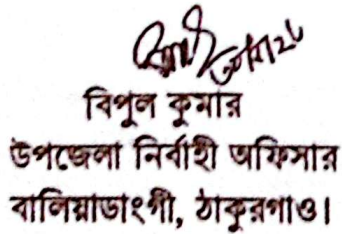 বিপুল কুমার
উপজেলা নির্বাহী অফিসার
বালিয়াডাংগী, ঠাকুরগাও।